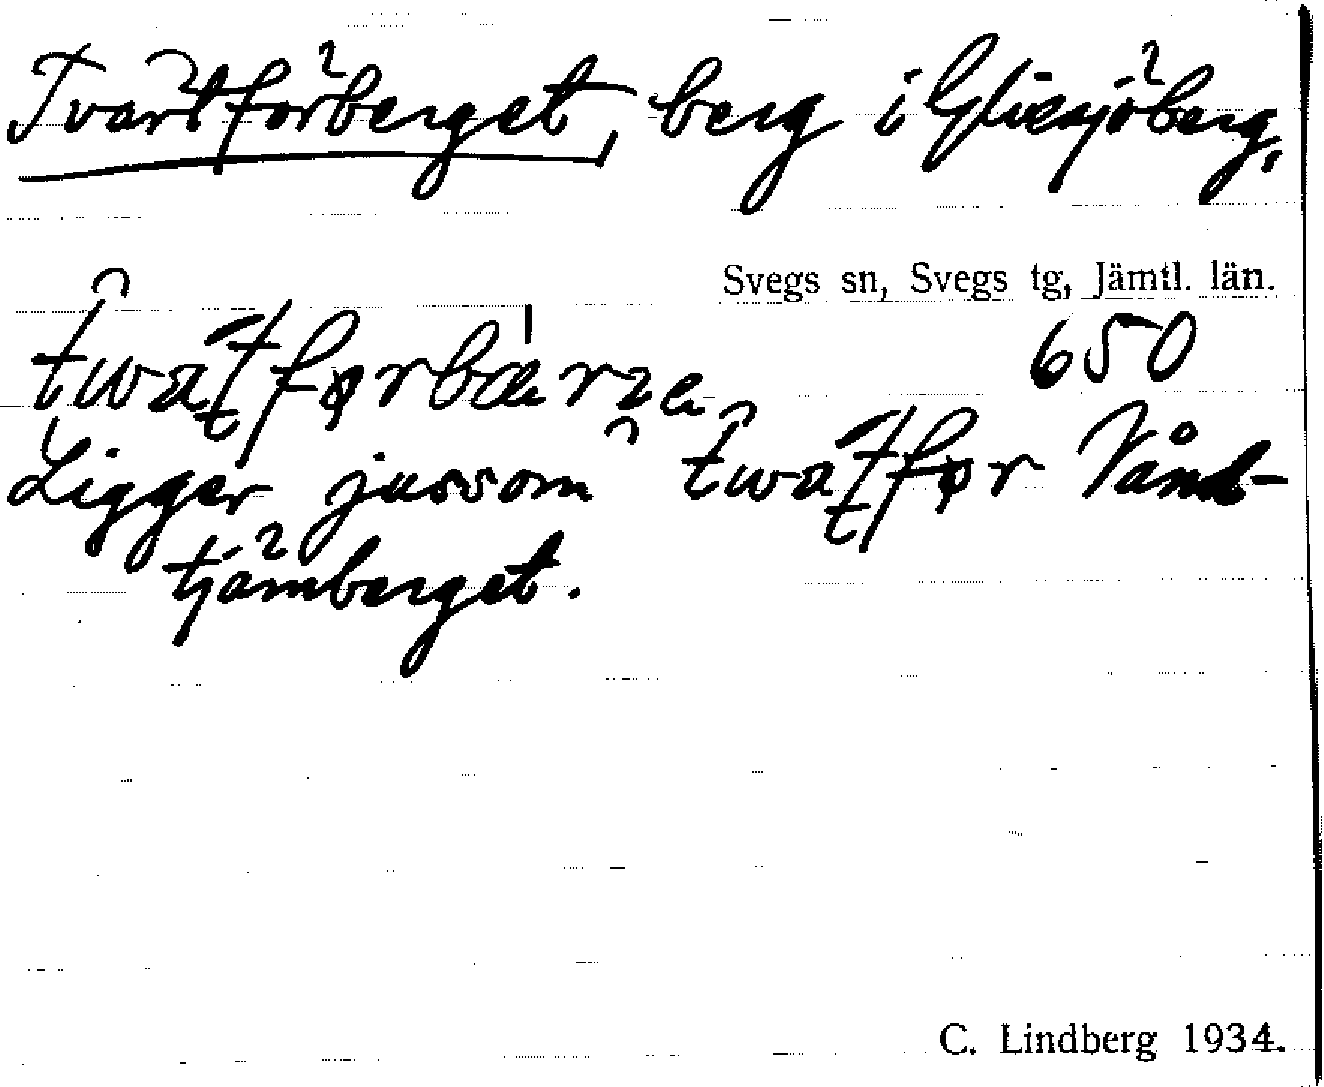 Tvärtförberget, berg i Glissjöberg,
Svegs sn, Svegs tg, Jämtl. län.
650
Ligger jussom för Vänd-
tjärnberget.
C. Lindberg 1934.